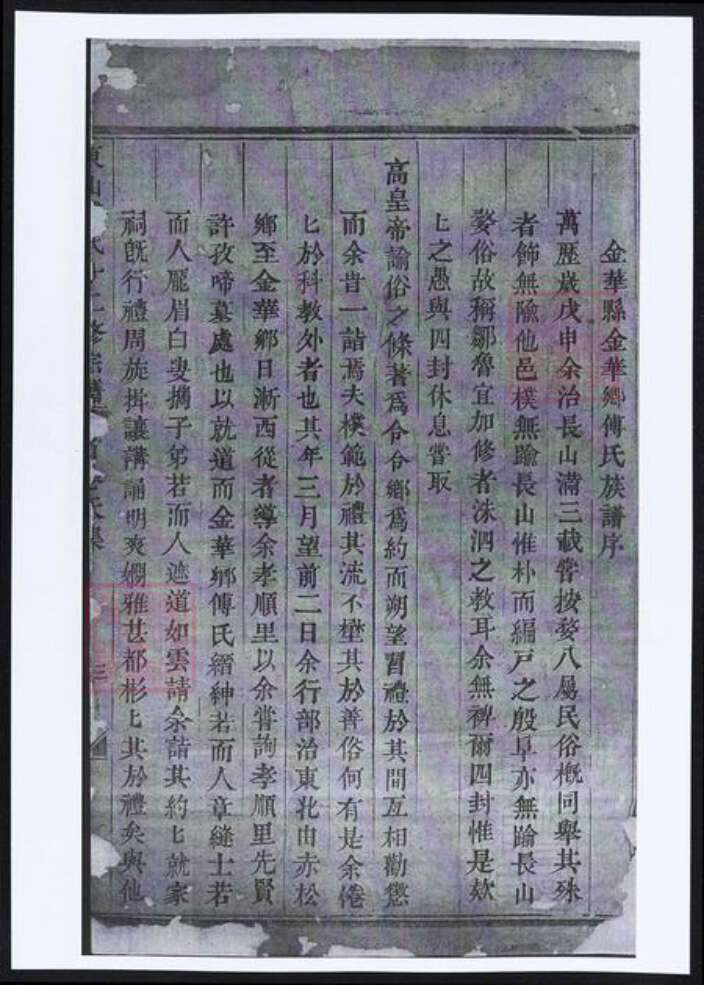 金華縣金華鄉傅氏族譜序
萬歷歲戊申余治長山滿三載嘗按婺八屬民俗槪同舉其殊
者飾無隃他邑樸無踰長山惟朴而編戸之殷阜亦無踰長山
婺俗故稱鄒魯宜加修者洙泗之敎耳余無裨爾四封惟是欸
匕之愚與四封休息嘗取
高皇帝諭俗之條著爲令令鄉爲約而朔望習禮於其間互相勸懲
而余昔一詣焉夫樸範於禮其流不壅其於善俗何有是余倦
匕於科敎外者也其年三月望前二日余行部治東北由赤松
鄉至金華鄉日漸西從者導余孝順里以余嘗詢孝順里先賢
許孜啼墓處也以就道而金華鄉傅氏縉紳若而人章縫士若
而人龎眉白叟擕子弟若而人遮道如雲請余詣其約匕就家
祠旣行禮周旋揖讓講誦明爽嫺雅甚都彬匕其於禮矣與他